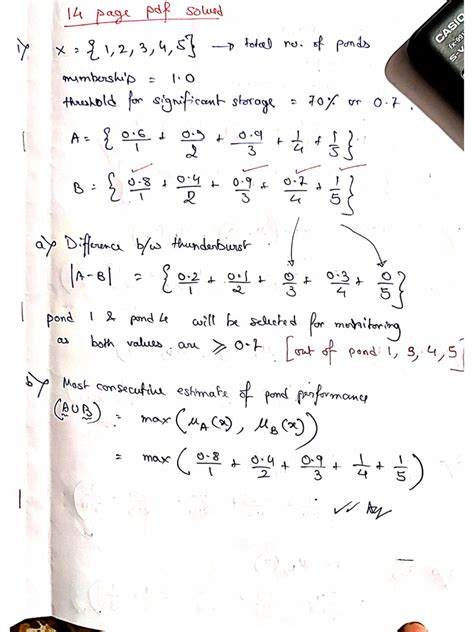 14 page pdf solved
1) X = {1, 2, 3, 4, 5} → total no. of ponds
membership = 1.0
threshold for significant storage = 70% or 0.7.
A = {0.6/1 + 0.5/2 + 0.9/3 + 1/4 + 1/5}
B = {0.8/1 + 0.4/2 + 0.9/3 + 0.7/4 + 1/5}
a) Difference b/w thunderburst
|A-B| = {0.2/1 + 0.1/2 + 0/3 + 0.3/4 + 0/5}
pond 1 & pond 4 will be selected for monitoring
as both values are ≥ 0.7 [out of pond 1, 3, 4, 5]
b) Most consecutive estimate of pond performance
(A∪B) = max(μA(x), μB(x))
= max(0.8/1 + 0.4/2 + 0.9/3 + 1/4 + 1/5)
CASIO